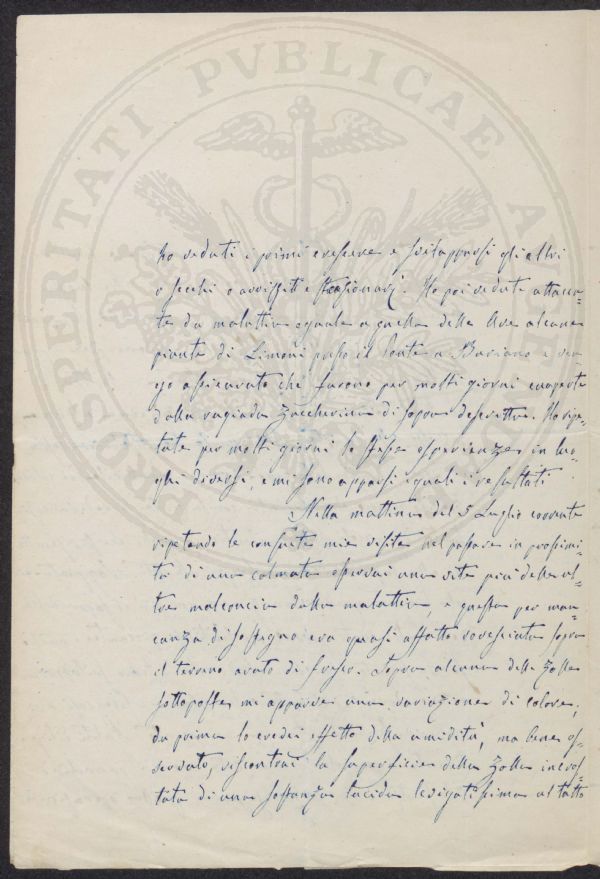 PROSPERITATI PVBLICAE AV
ho veduti i primi crescere e svilupparsi gli altri
o secchi o avvizziti e stazionarj. Ho poi vedute attacca-
te da malattia eguale a quella delle Uve alcune
piante di Limoni presso il Ponte a Buriano e ven-
go assicurato che furono per molti giorni coperte
dalla rugiada zuccherina di sopra descritta. Ho ripe-
tute per molti giorni le stesse esperienze in luo-
ghi diversi, e mi sono apparsi eguali i resultati
Nella mattina del 5 Luglio corrente
ripetendo le consuete mie visite nel passare in prossimi-
tà di una colmata osservai una vite più delle al-
tre malconcia dalla malattia, e questa per man-
canza di sostegno era quasi affatto rovesciata sopra
il terreno arato di fresco. Sopra alcuna delle zolle
sottoposte mi apparve una variazione di colore,
da prima lo credei effetto della umidità, ma bene os-
servato, riscontrai la superficie della zolla incros-
tata di una sostanza lucida levigatissima al tatto